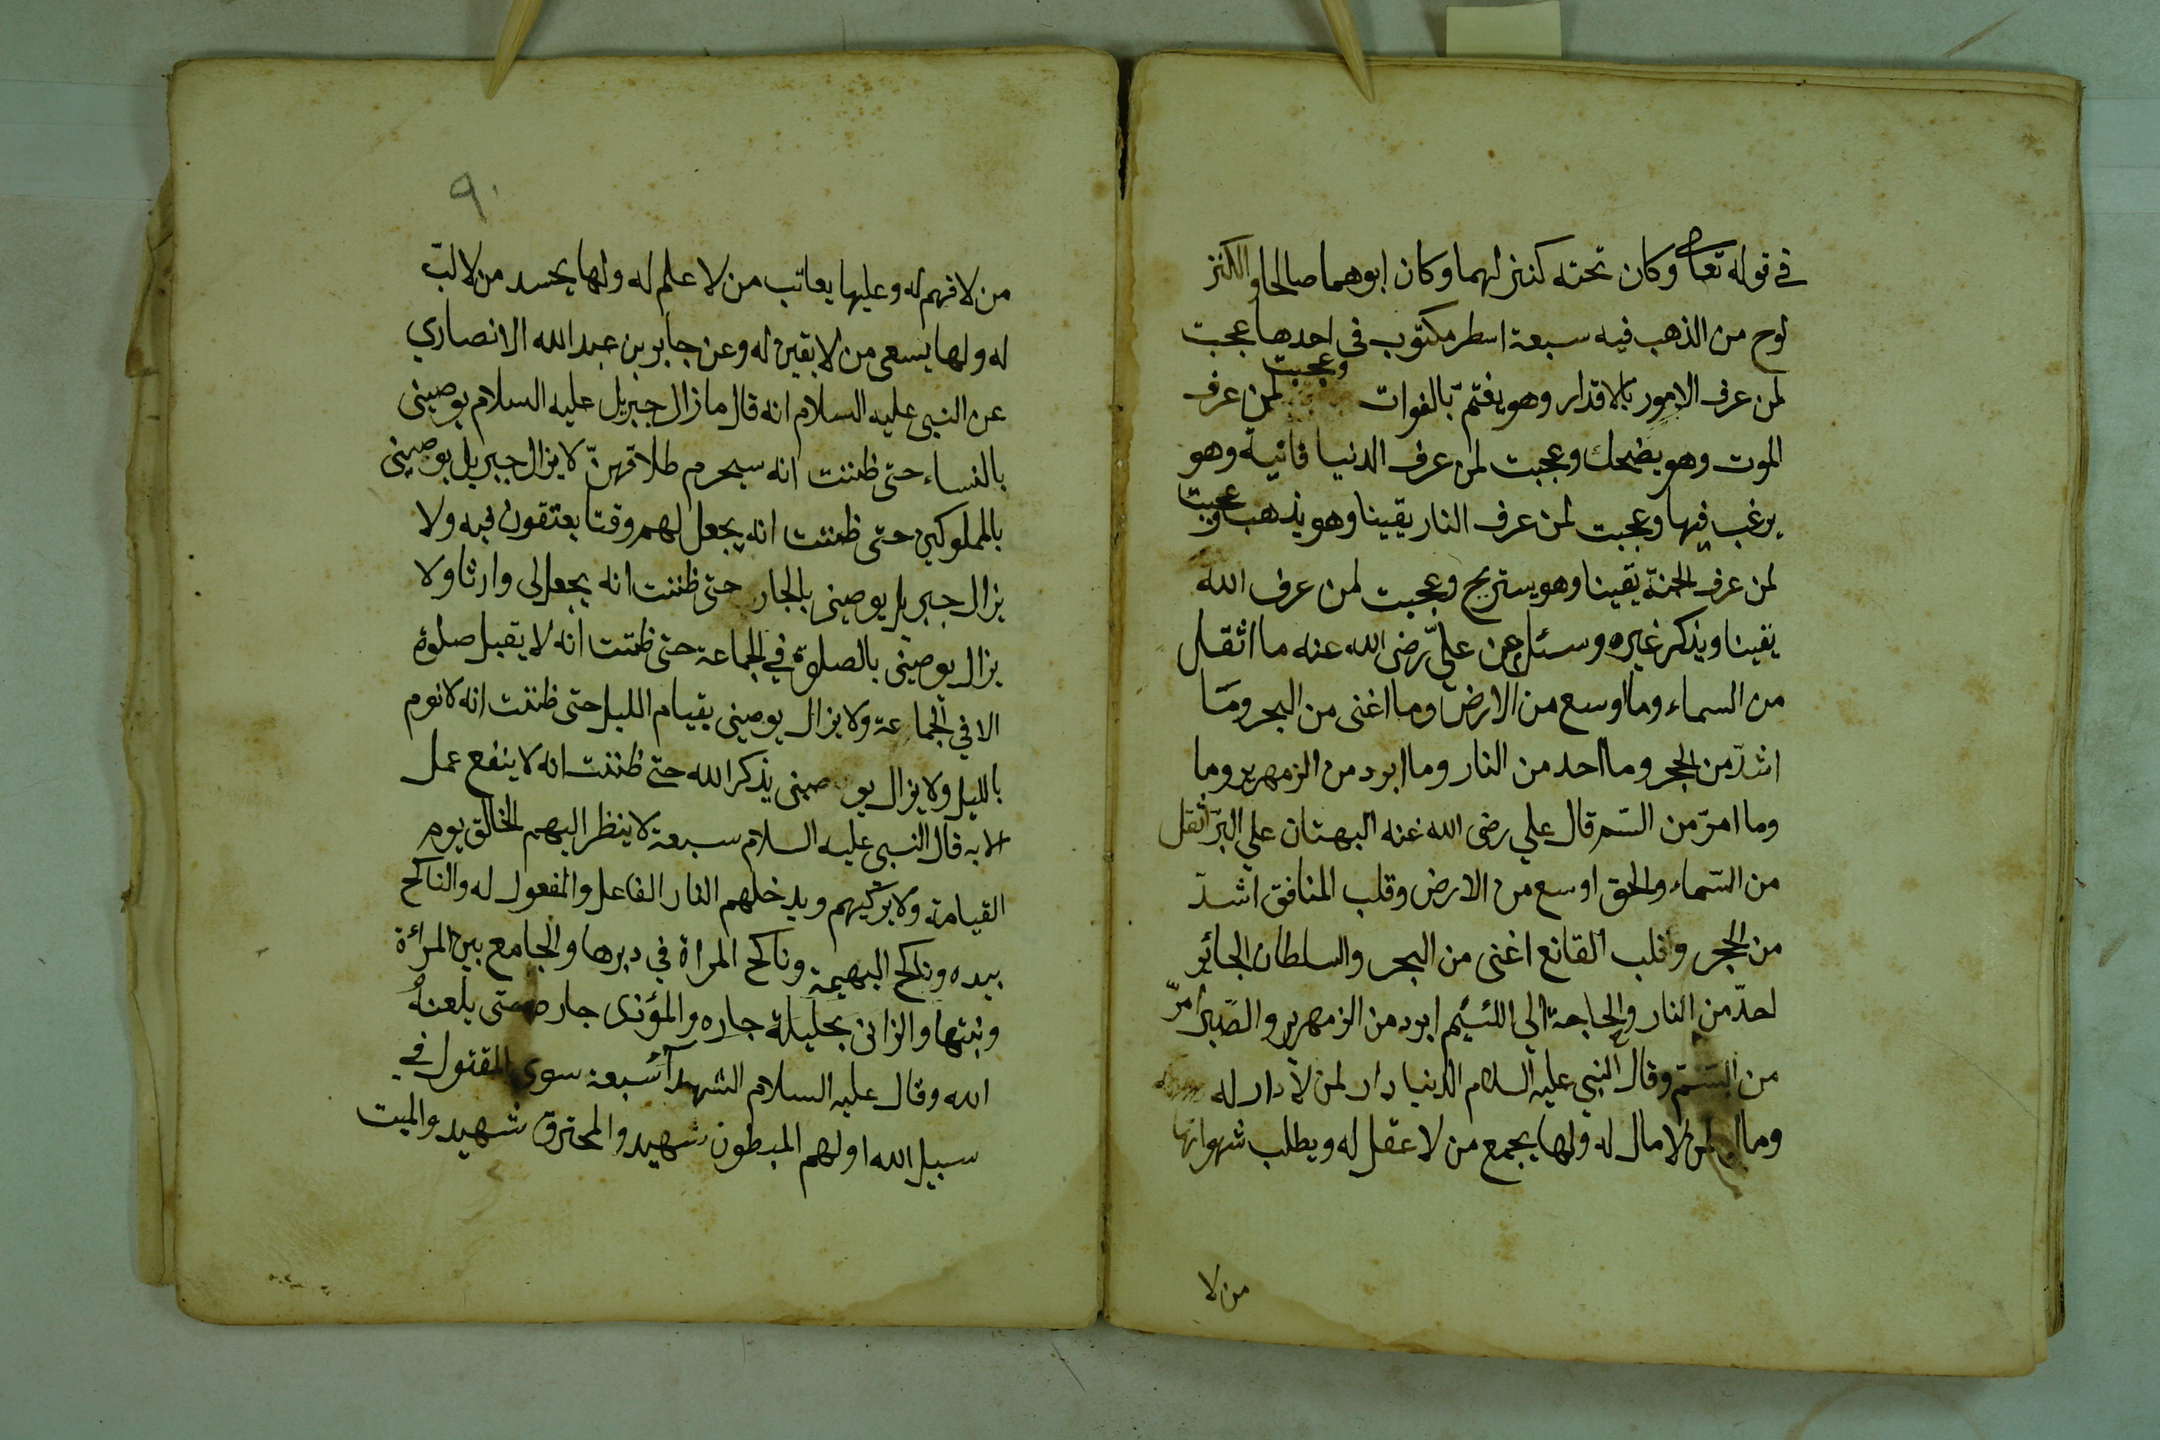 في قوله تعالى وكان تحته كنز لهما وكان ابوهما صالحا والكنز
لوح من الذهب فيه سبعة اسطر مكتوب في احدها عجبت
لمن عرف الامور بالاقدار وهو يغتم بالفوات وعجبت لمن عرف
الموت وهو يضحك وعجبت لمن عرف الدنيا فانية وهو
يرغب فيها وعجبت لمن عرف النار يقينا وهو يذهب وعجبت
لمن عرف الجنة يقينا وهو يستريح وعجبت لمن عرف الله
يقينا ويذكر غيره وسئل عن عليّ رضى الله عنه ما اثقل
من السماء وما اوسع من الارض وما اغنى من البحر وما
اشدّ من الحجر وما احد من النار وما ابرد من الزمهرير وما
وما امرّ من السّم قال علي رضى الله عنه البهتان علي البرّ اثقل
من السّماء والحق اوسع من الارض وقلب المنافق اشدّ
من الحجر وقلب القانع اغنى من البحر والسلطان الجائر
احدّ من النار والحاجة الي اللئيم ابرد من الزمهرير والصّبر امرّ
من السّمّ وقال النبي عليه السلام الدنيا دار لمن لا دار له
ومال لمن لا مال له ولها يجمع من لا عقل له ويطلب شهواتها
من لا
٩٠
من لا فهم له وعليها يعاتب من لا علم له ولها يحسد من لا لبّ
له ولها يسعى من لا يقين له وعن جابر بن عبد الله الانصاري
عن النبى عليه السلام انه قال ما زال جبريل عليه السلام يوصينى
بالنساء حتى ظننت انه سيحرم طلاقهنّ لا يزال جبريل يوصينى
بالمملوكين حتى ظننت انه يجعل لهم وقتا يعتقون فيه ولا
يزال جبريل يوصينى بالجار حتى ظننت انه يجعل لى وارثا ولا
يزال يوصينى بالصلوة في الجماعة حتى ظننت انه لا يقبل صلوة
الا في الجماعة ولا يزال يوصينى بقيام الليل حتى ظننت انه لا نوم
بالليل ولا يزال يوصينى يذكر الله حتى ظننت انه لا ينفع عمل
الا به قال النبى عليه السلام سبعة لا ينظر اليهم الخالق يوم
القيامة ولا يزكيهم ويدخلهم النار الفاعل والمفعول له والناكح
بيده وناكح البهيمة وناكح المراة في دبرها والجامع بين المرأة
وبنتها والزانى بحليلة جاره والمؤذى جاره حتى يلعنه
الله وقال عليه السلام الشهدآء سبعة سوى المقتول في
سبيل الله اولهم المبطون شهيد والمحترق شهيد والميت